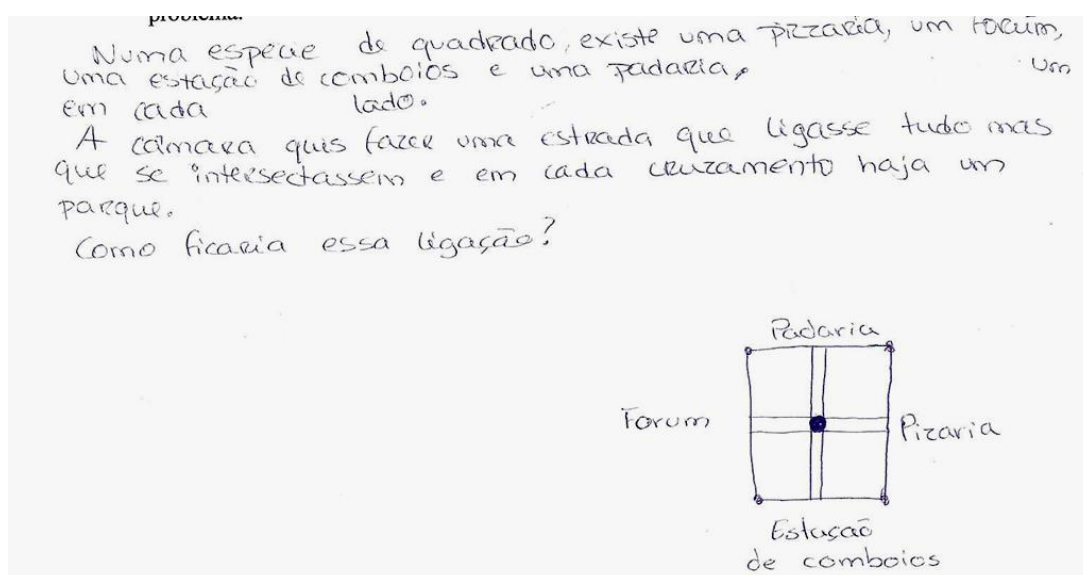 problema.
Numa especie de quadrado, existe uma pizzaria, um forum,
uma estação de comboios e uma padaria, um
em cada lado.
A câmara quis fazer uma estrada que ligasse tudo mas
que se intersectassem e em cada cruzamento haja um
parque.
Como ficaria essa ligação?
Padaria
Forum
Pizaria
Estação
de comboios